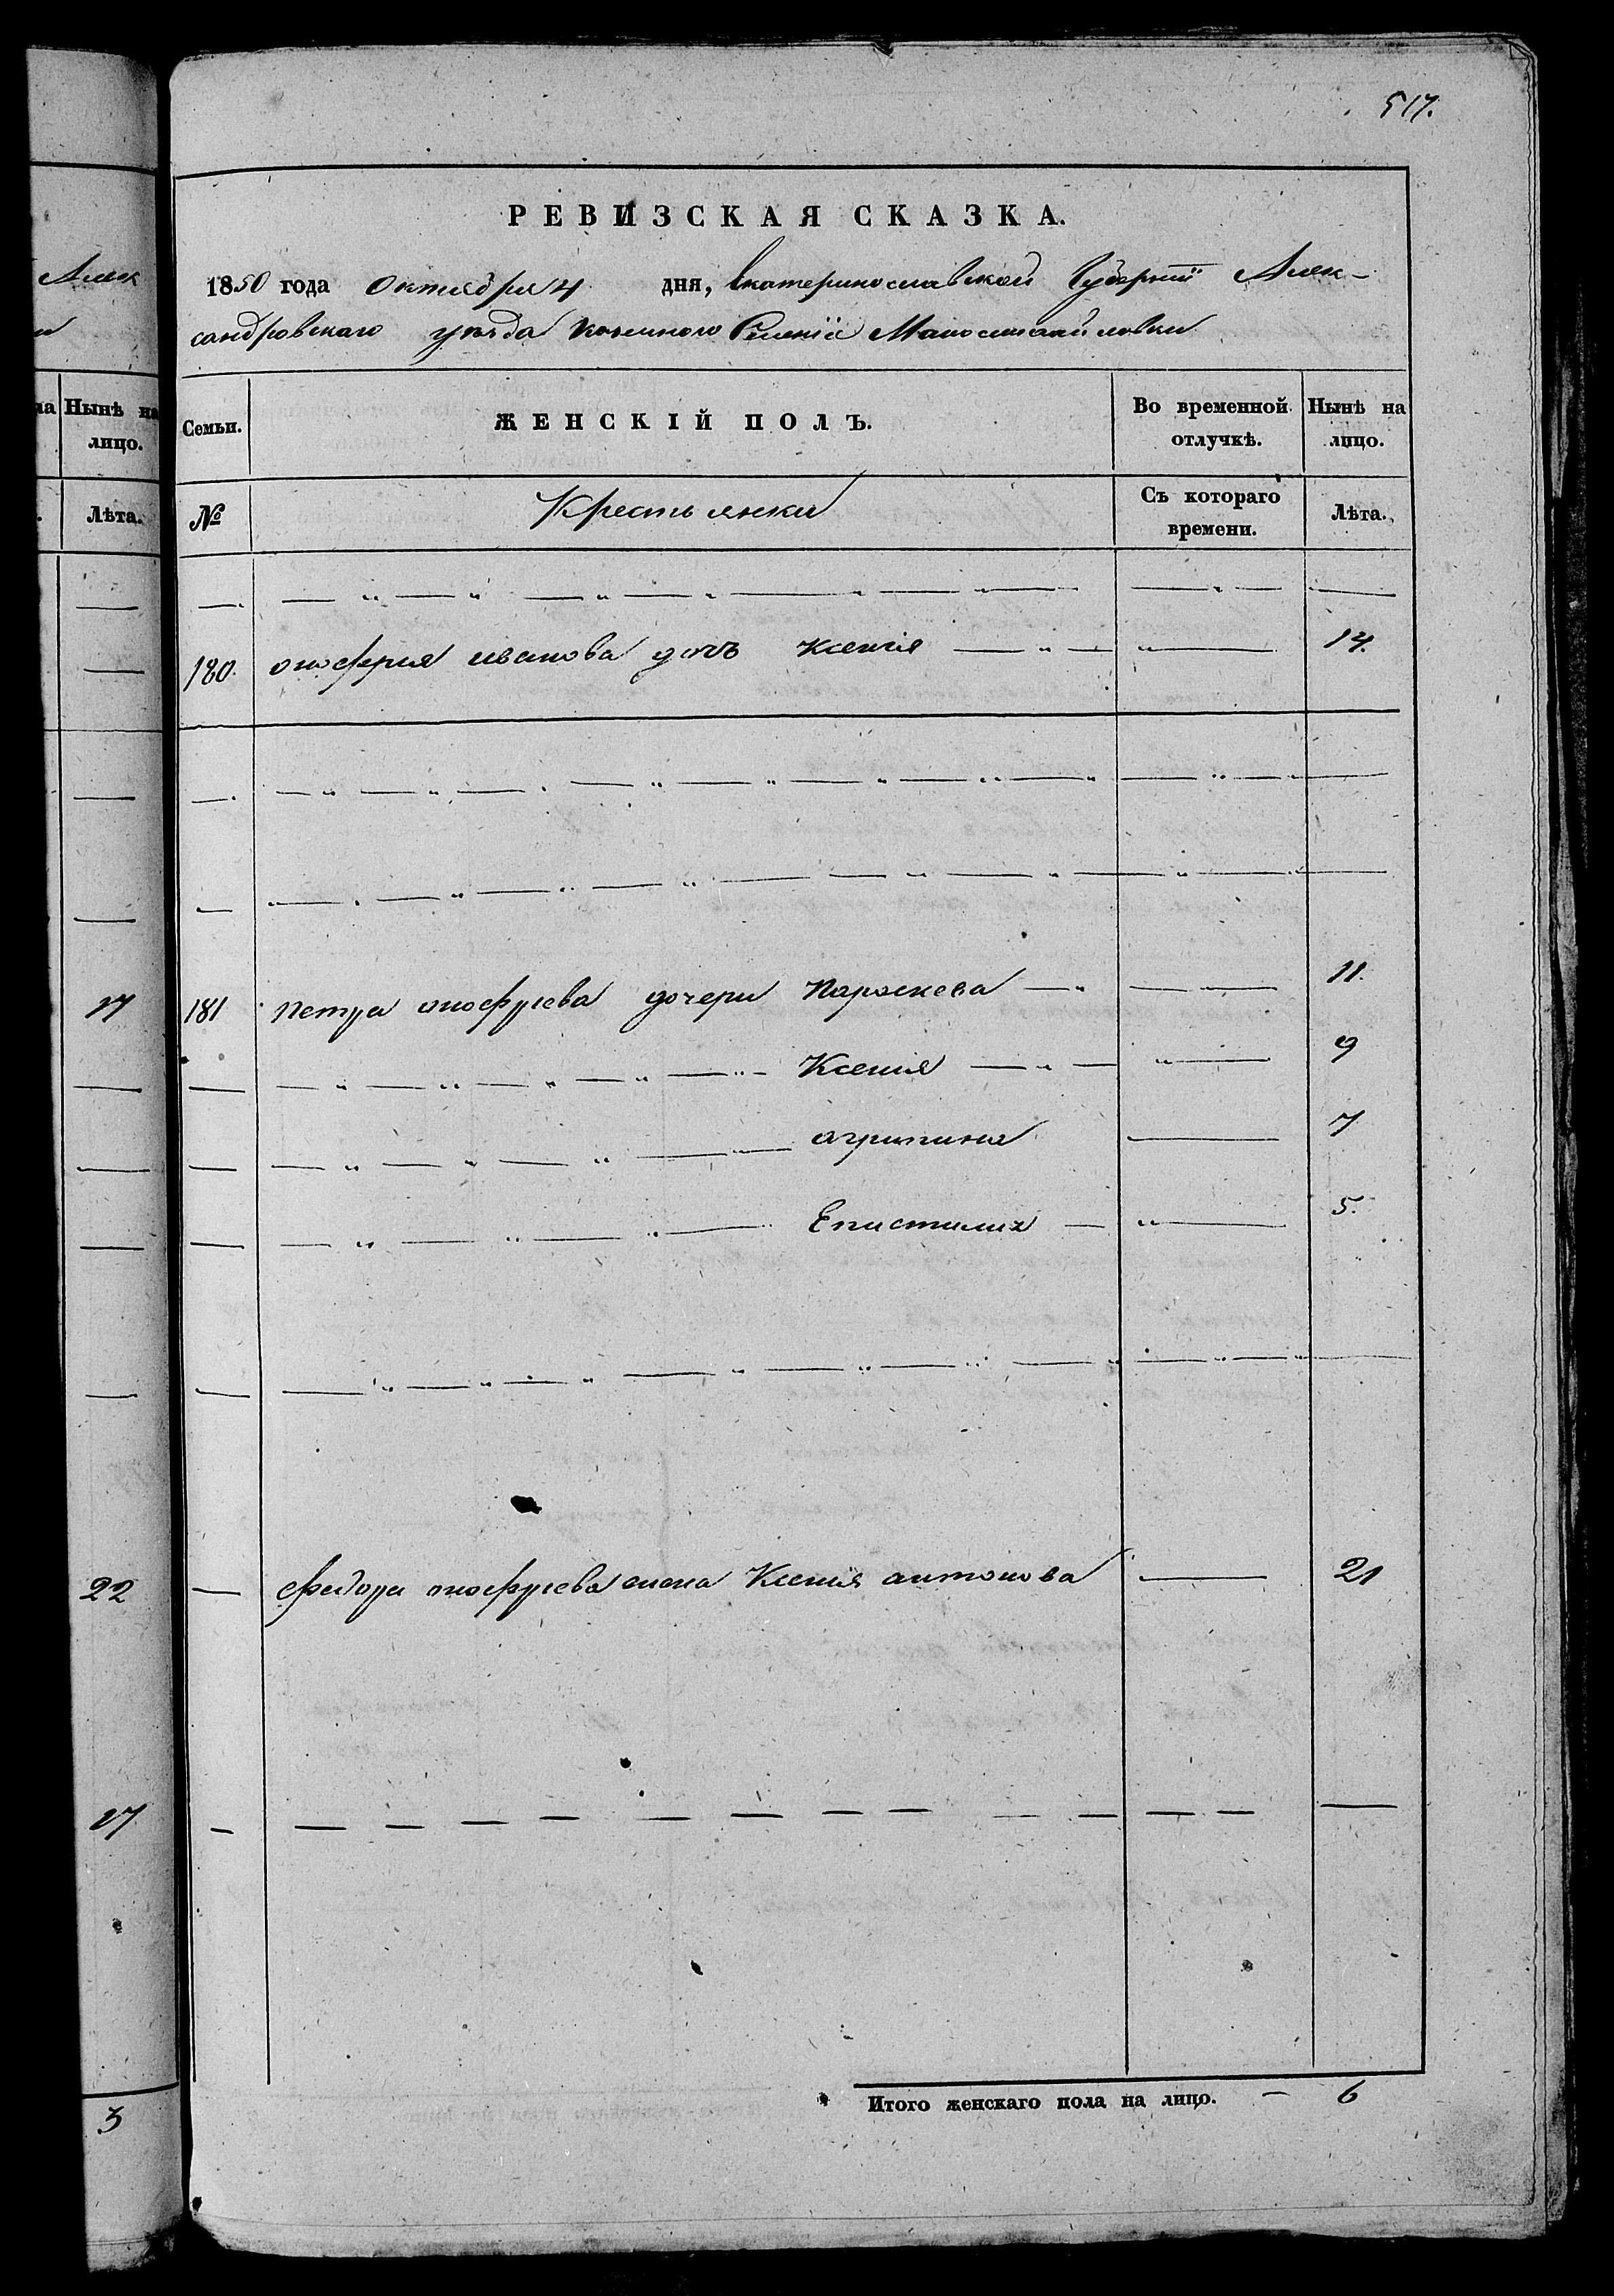 517.
РЕВИЗСКАЯ СКАЗКА.
1850 года Октября 4 дня, Екатеринославской Губернии Алек-
сандровскаго уезда казенного Селенiя Маломихайловки
Алек
Нынѣ на лицо.
Лѣта.
17
22
17
3
Семьи.
ЖЕНСКІЙ ПОЛЪ.
Во временной отлучкѣ.
Нынѣ на лицо.
№
Крестьянки
Съ котораго времени.
Лѣта.
180. онофрия иванова дочь Ксения 14.
181 петра онофриева дочери Параскева 11.
Ксения 9
агрипина 7
Епистимия 5.
федора онофриева жена Ксения антонова 21
Итого женскаго пола на лицо. — 6